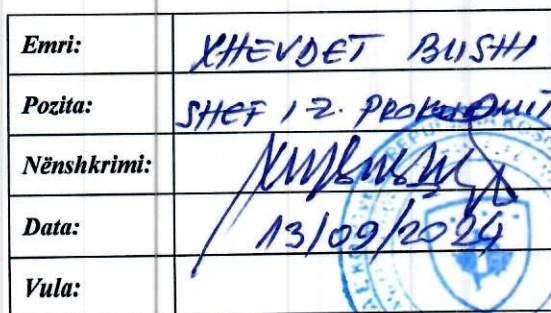 Emri: XHEVDET BUSHI
Pozita: SHEF I Z. PROKURIMIT
Nënshkrimi:
Data: 13/09/2024
Vula: